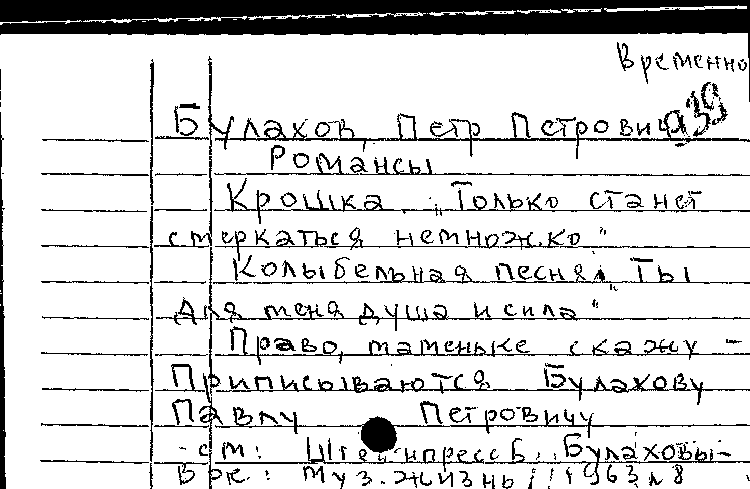 Временно
939
Булахов, Петр Петрович
Романсы
Крошка. „Только станет
смеркаться немножко"
Колыбельная песня. „Ты
для меня душа и сила"
Право, маменьке скажу –
Приписываются Булахову
Павлу Петровичу
см: Штейнпресс Б. Булаховы–
В рж.: Муз. жизнь // 1963 № 8